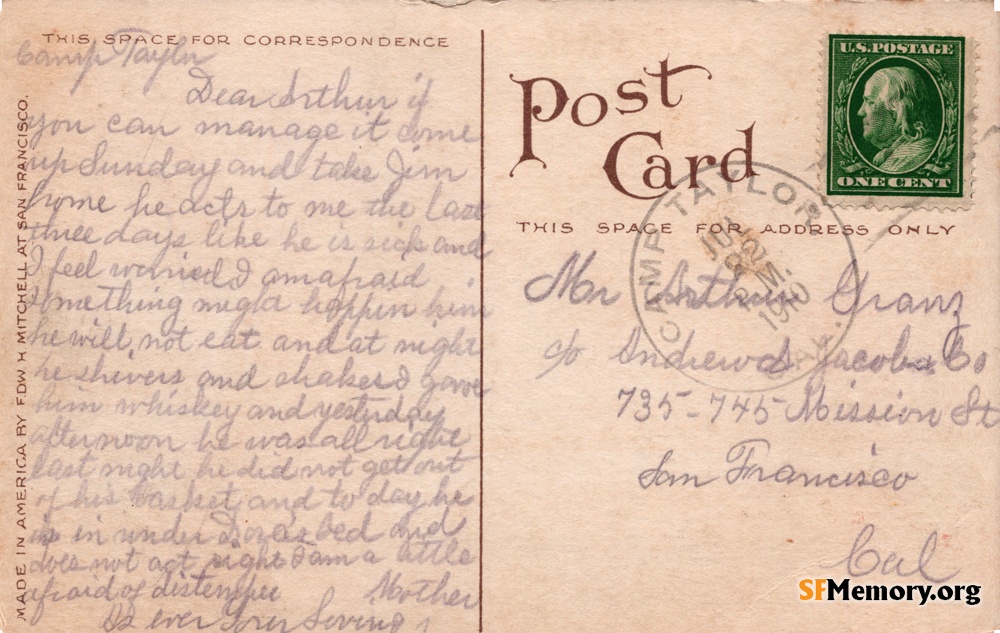 THIS SPACE FOR CORRESPONDENCE
Camp Taylor
Dear Arthur if
you can manage it come
up Sunday and take Jim
home he acts to me the last
three days like he is sick and
I feel worried I am afraid
something might happin him
he will not eat and at night
he shivers and shakes I gave
him whiskey and yesterday
afternoon he was all right
last night he did not get out
of his basket and to day he
is in under Doras bed and
does not act right I am a little
afraid of distemper Mother
As ever your Loving
MADE IN AMERICA BY EDW. H. MITCHELL AT SAN FRANCISCO.
Post
Card
U.S. POSTAGE
ONE CENT
THIS SPACE FOR ADDRESS ONLY
CAMP TAYLOR
CAL.
1910
Mr Arthur Granz
c/o Andrew Jacobs Co
735-745 Mission St
San Francisco
Cal
SFMemory.org